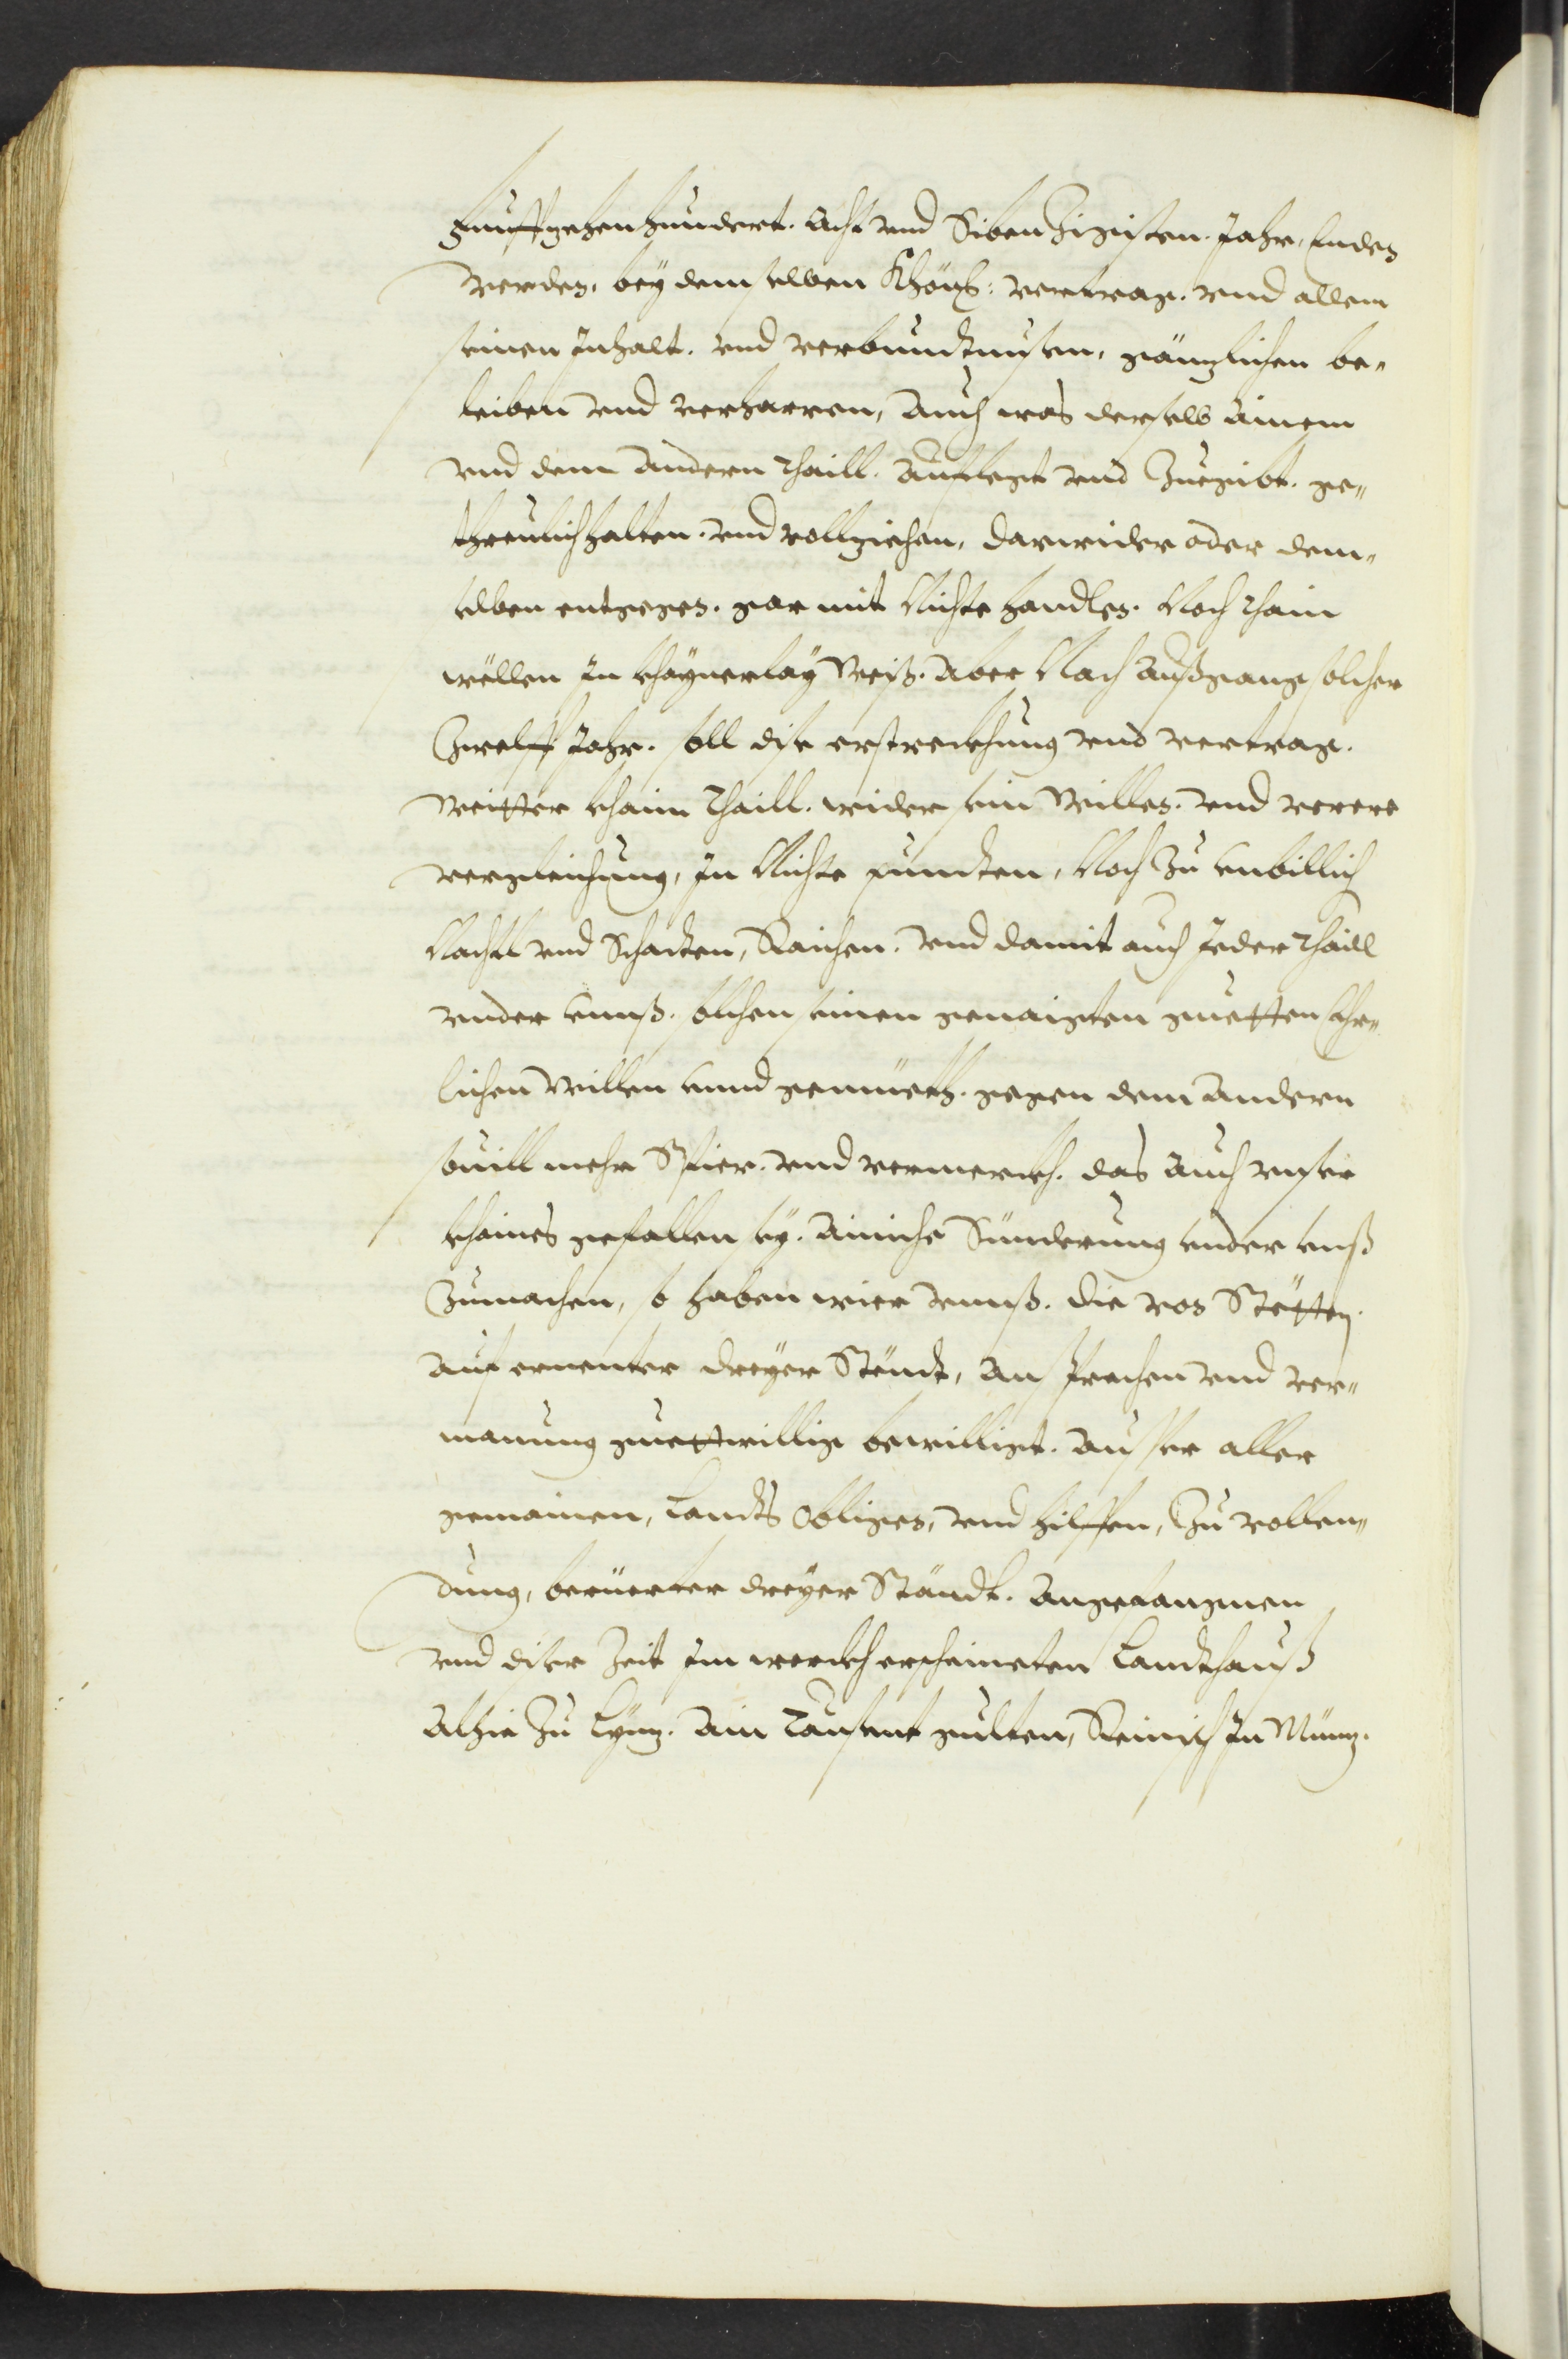 Funffzehenhundert. Acht vnd Sibenzigisten. Jahr, Enden
werden, bey demselben Khönig: vertrag. vnd allem
seinen Inhalt. vnd verbundtnusen, gänzlichen be„
leiben vnd verharren, Auch was derselb ainem
vnd dem andern Thaill. Auflegt vnd Zuegibt. ge„
threulich halten. vnd vollziehen, darwider oder dem„
selben entgegen. gar mit Nichte handlen. Noch Thain
wellen In khaynerlay Weiß. Aber Nach Außgang solcher
Zwelff Jahr. soll dise erstreckhung vnd vertrag.
Weitter khaim Thaill. wider sein Willen. vnd
vergleichung, In Nichte puncten, Noch Zu Vnbillich
Nachtl vnd Schaden, Raichen. vnd damit auch Jeder Thaill
vnder Vnnß. solhen seinen genaigten guetten Ehr„
lichen Willen Vnnd gemüeth. gegen dem Andern
souill mehr Spier. vnd vermerckh. das Auch vnser
khaines gefallen sey. Ainiche Sünderung vnder vnß
Zumachen, so haben wier vnnß. die von Stetten.
auf ernenter dreyer Ständt, an sprechen vnd ver„
manung guettwillig bewilligt. Ausser aller
gemainen, Landts Obligen, vnd hilffen, Zu vollen„
dung, beruerter dreyer Ständt. Angefangnen
vnd diser Zeit Im werckh erscheineten Landthauß
Alhie Zu Lynz. Ain Tausent gulten, Reinisch In Münz.